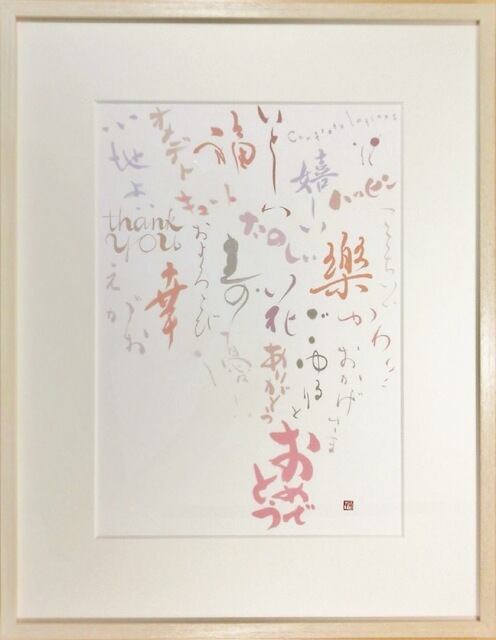 Congratulations
ハッピー
嬉しい
いとしい
福
オメデトー
心地よい
キュート
たのしい
楽
かわいい
ゆ
おかげさま
ごゆるりと
花
寿
およろこび
thank
you
幸
えがお
愛
ありがとう
おめで
とう